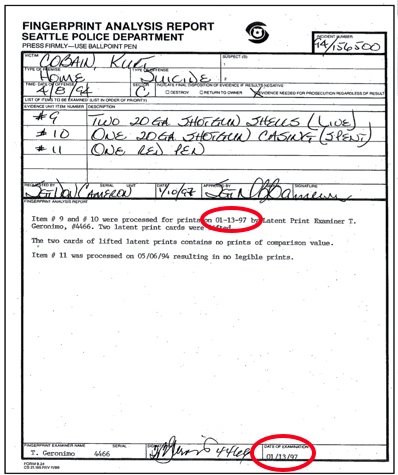 FINGERPRINT ANALYSIS REPORT
SEATTLE POLICE DEPARTMENT
PRESS FIRMLY—USE BALLPOINT PEN
INCIDENT NUMBER
94/156500
VICTIM
COBAIN, KURT
SUSPECT(S)
TYPE OF PREMISE
HOME
TYPE OF OFFENSE
SUICIDE
TIME - DATE OF OFFENSE
4/8/94
SECTOR
C
INDICATE FINAL DISPOSITION OF EVIDENCE IF RESULTS NEGATIVE
DESTROY
RETURN TO OWNER
EVIDENCE NEEDED FOR PROSECUTION REGARDLESS OF RESULT
LIST OF ITEMS TO BE EXAMINED (LIST IN ORDER OF PRIORITY)
EVIDENCE UNIT ITEM NUMBER
DESCRIPTION
#9 TWO 20GA SHOTGUN SHELLS (LIVE)
#10 ONE 20GA SHOTGUN CASING (SPENT)
#11 ONE RED PEN
REQUESTED BY
SERIAL
UNIT
DATE
APPROVED BY
SIGNATURE
CAMERON
1/10/97
FINGERPRINT ANALYSIS REPORT
Item # 9 and # 10 were processed for prints on 01-13-97 by Latent Print Examiner T.
Geronimo, #4466. Two latent print cards were lifted.
The two cards of lifted latent prints contains no prints of comparison value.
Item # 11 was processed on 05/06/94 resulting in no legible prints.
FINGERPRINT EXAMINER NAME
SERIAL
DATE OF EXAMINATION
T. Geronimo 4466
4466
01/13/97
FORM 9.24